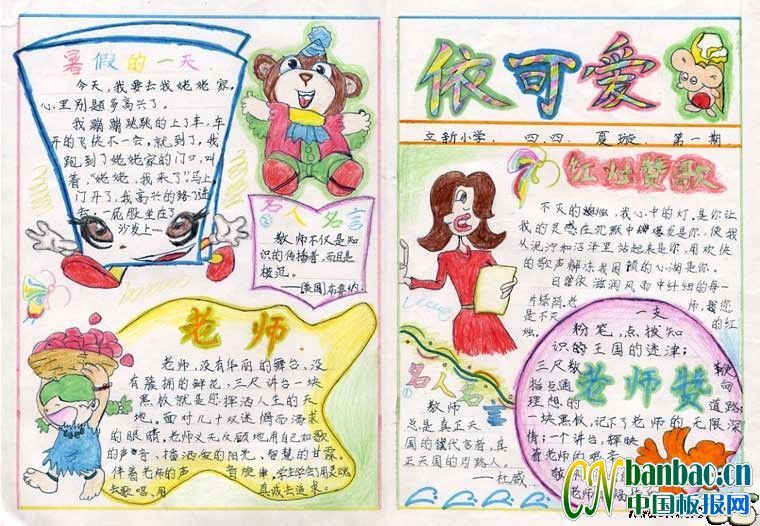 暑假的一天
今天,我要去我姥姥家,
心里别题多高兴了。
我蹦蹦跳跳的上了车,车
开的飞快不一会,就到了,我
跑到了姥姥家的门口,叫
着,“姥姥,我来了”马上,
门开了,我高兴的
去,一屁股坐在了
沙发上……
名人名言②
教师不仅是知
识的传播者,而且是
模范。
——[美国]布鲁纳
老师
老师,没有华丽的舞台,没
有簇拥的鲜花,三尺讲台一块
黑板就是您挥洒人生的天
地。面对几十双迷惘而渴求
的眼睛,老师义无反顾地用自己如歌
的声音,播洒爱的阳光,智慧的甘霖。
伴着老师的声音旋律,学生学会用灵魂
去歌唱、用真诚去追求。
依可爱
立新小学、四、四、夏璇、第一期
红烛赞歌
不灭的烛,我心中的灯。是你让
我的灵感在沉默中爆发是你,使我
从泥泞和沼泽里站起来是你,用欢快
的歌声解放我困顿的心湖是你。
滋润风雨中纤细的每一
片绿洲。老师,我
是不灭的红
烛。
名人名言①
教师
总是真正天
国的代言者,真
正天国的引路人。
——杜威
老师赞
一支
粉笔,点拨知
识的王国的迷津;
三尺教鞭
指点通向
理想的道路;
一块黑板,记下了老师的无限深
情;一个讲台,辉映
着老师的
CNbanbao.cn
中国板报网